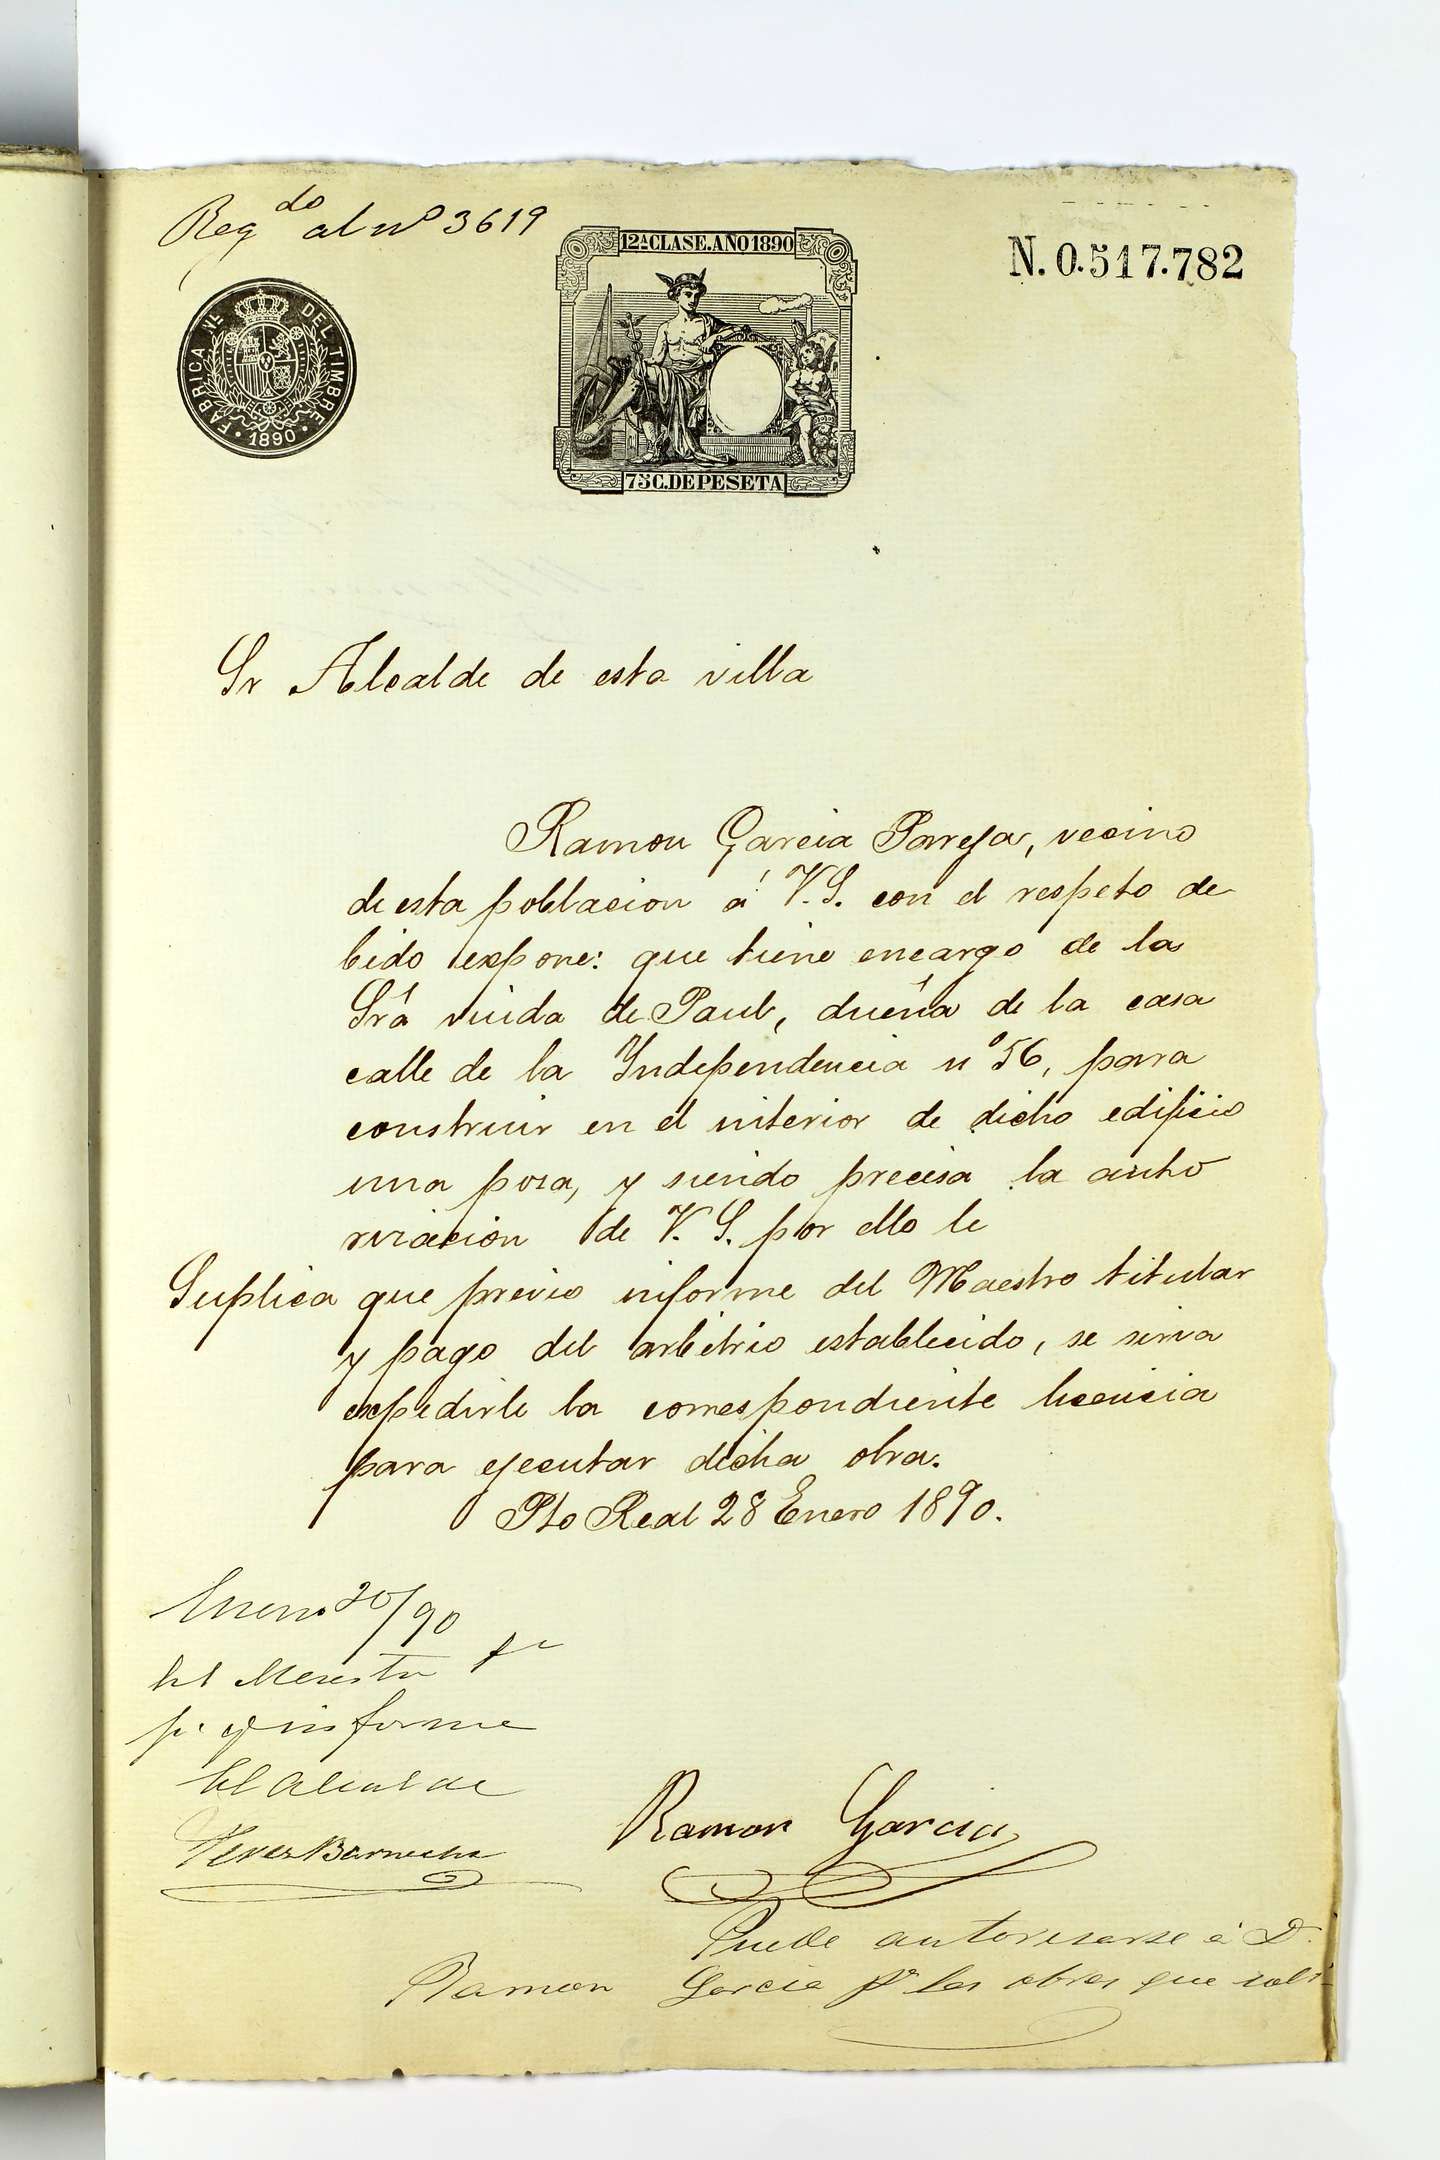 Reg.do al nº 3619
12ª CLASE. AÑO 1890
N. 0.517.782
FABRICA NL. DEL TIMBRE
· 1890 ·
75 C. DE PESETA
Sr Alcalde de esta villa
Ramon Garcia Pareja, vecino
de esta poblacion á V. S. con el respeto de
bido expone: que tiene encargo de la
Srá viuda de Paul, dueña de la casa
calle de la Independencia nº 56, para
construir en el interior de dicho edificio
una poza, y siendo precisa la auto
rizacion de V. S. por ello le
Suplica que previo informe del Maestro titular
y pago del arbitrio establecido, se sirva
expedirle la correspondiente licencia
para ejecutar dicha obra.
Pto Real 28 Enero 1890.
Enero /90
El Maestro
informe
El Alcalde
Ramon Garcia
Puede autorisarse á D.
Ramon Garcia pª las obras que soli-